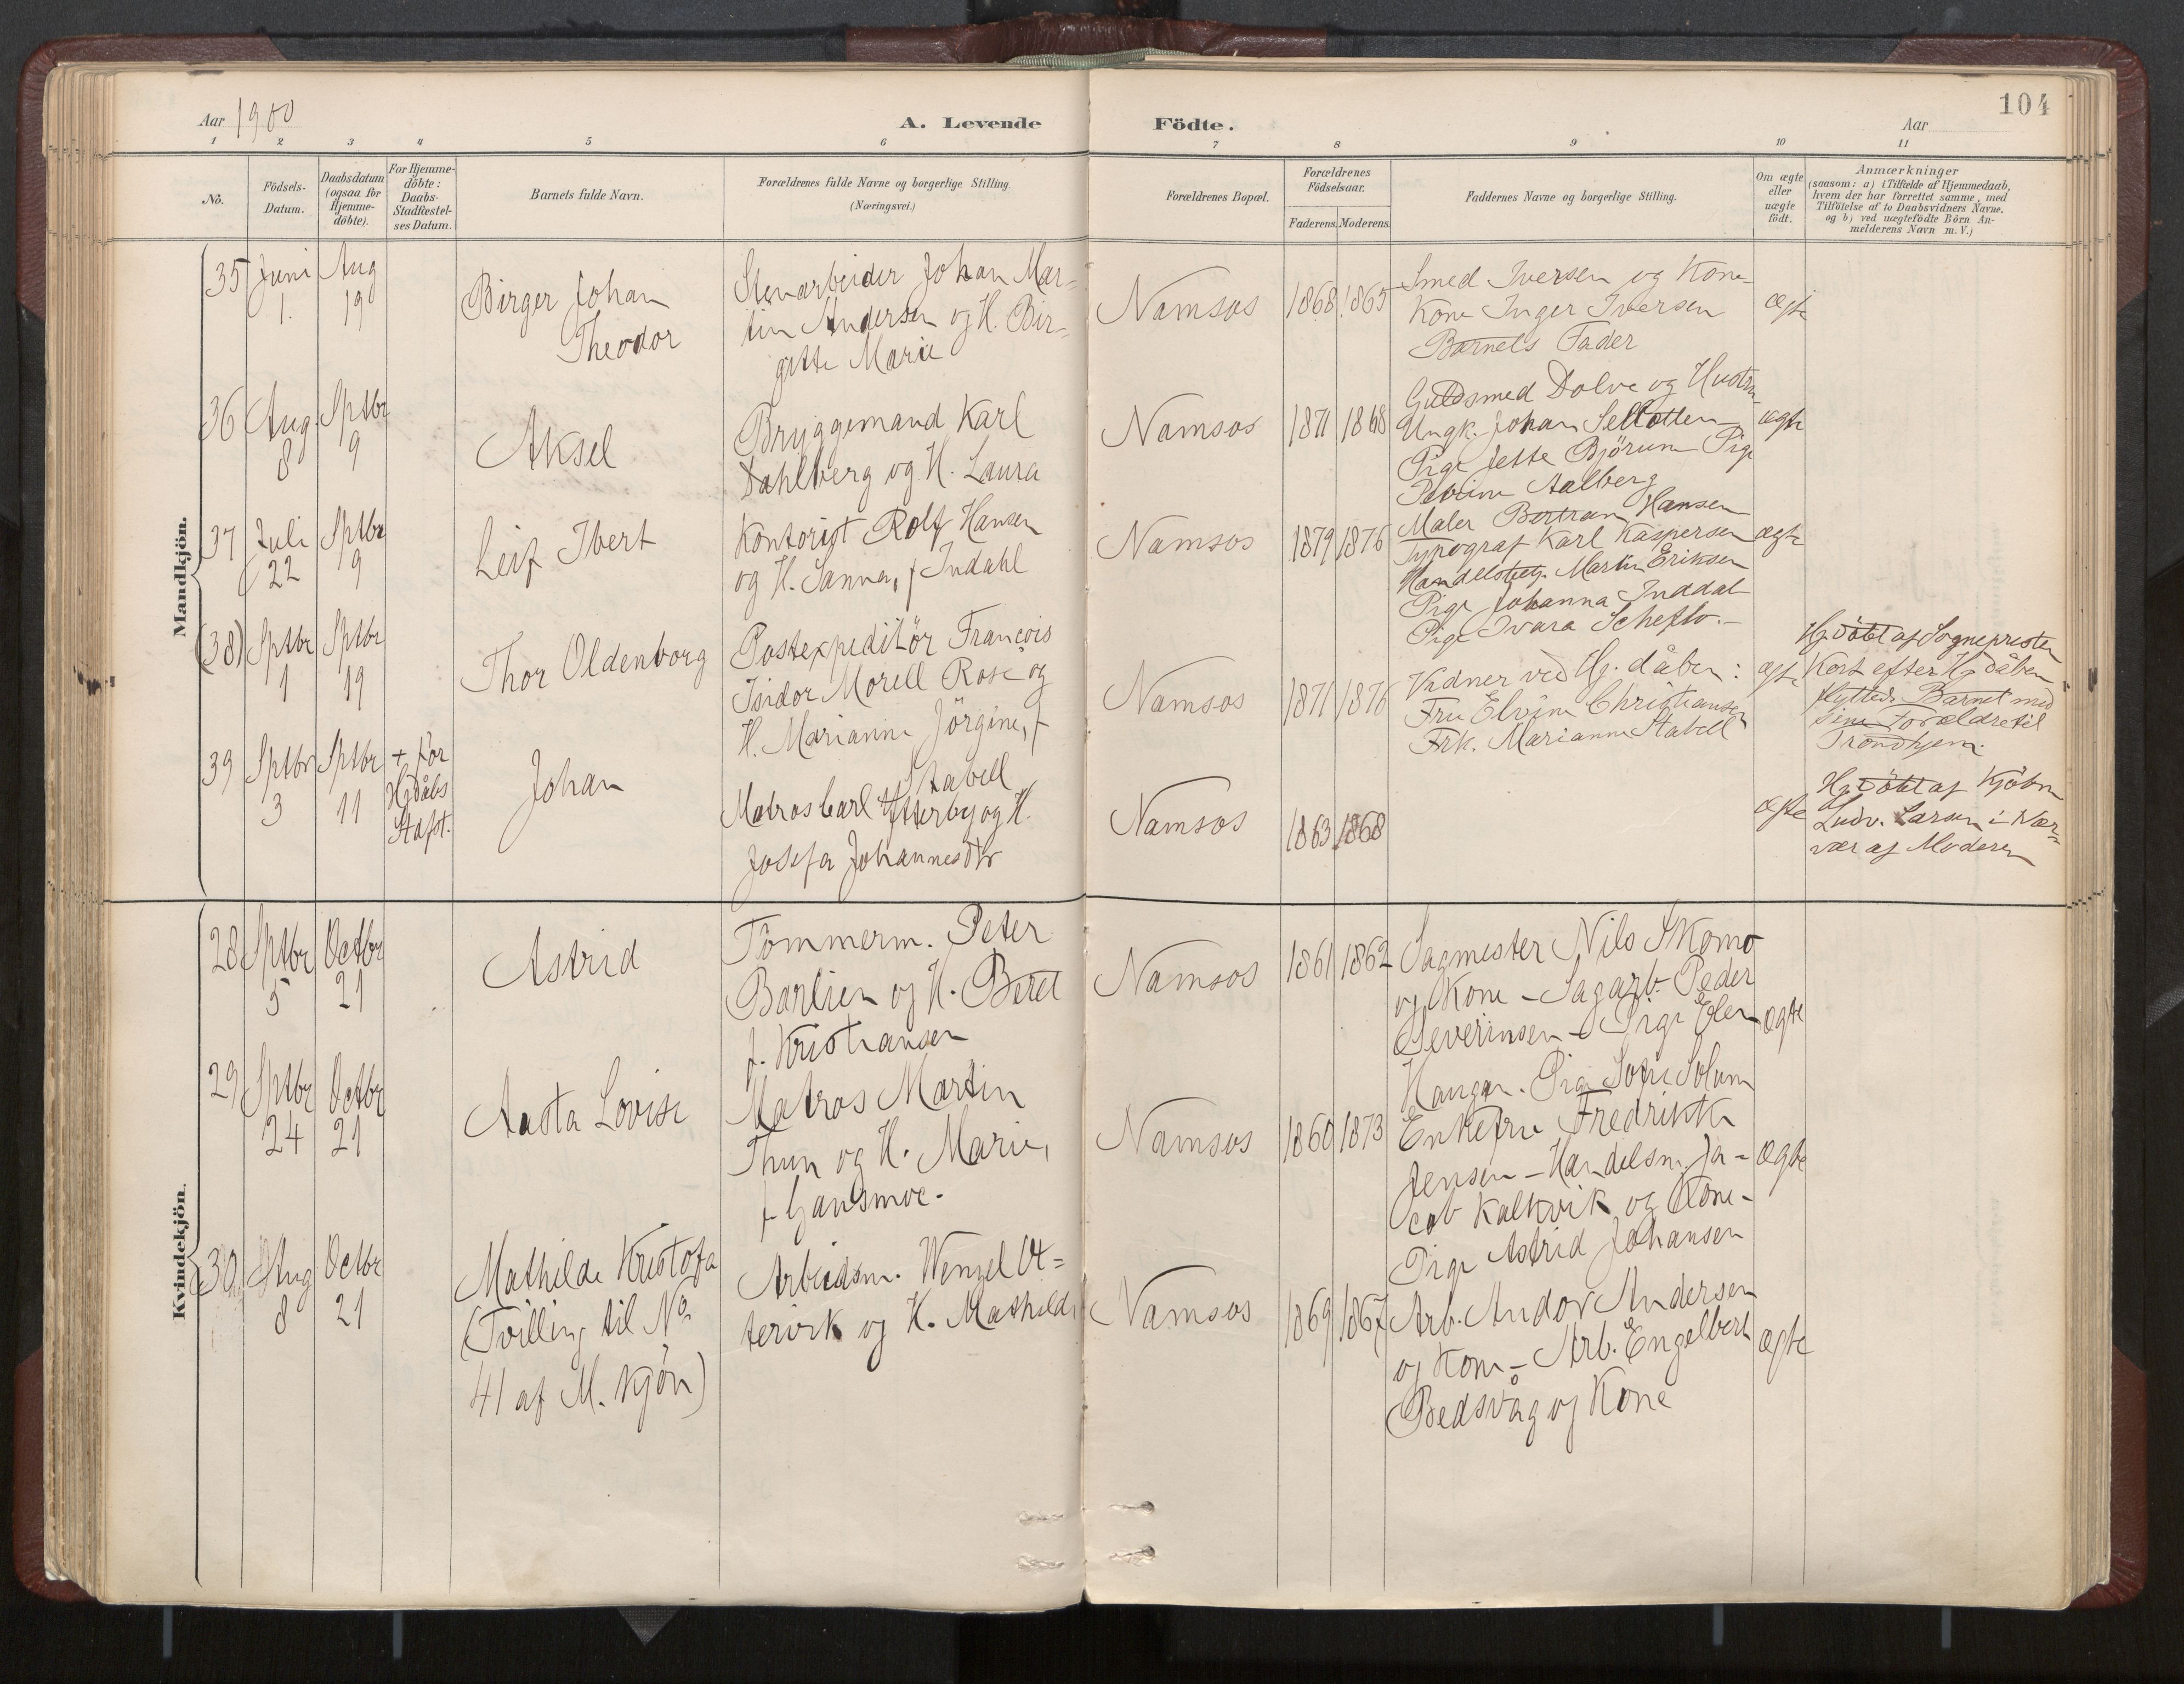 104
Aar 1900
A. Levende Födte.
Aar
1 2 3 4 5 6 7 8 9 10 11
No.
Födsels-
Datum.
Daabsdatum
(ogsaa for
Hjemme-
döbte).
For Hjemme-
döbte:
Daabs-
Stadfæstel-
ses Datum.
Barnets fulde Navn.
Forældrenes fulde Navne og borgerlige Stilling.
(Næringsvei.)
Forældrenes Bopæl.
Forældrenes
Födselsaar.
Faderens. Moderens.
Faddernes Navne og borgerlige Stilling.
Om ægte
eller
uægte
födt.
Anmærkninger
(saasom: a) i Tilfælde af Hjemmedaab,
hvem der har forrettet samme, med
Tilföielse af to Daabsvidners Navne.
og b) ved uægtefödte Börn An-
melderens Navn m. V.)
Mandkjön.
35
Juni
1.
Aug
19
Birger Johan
Theodor
Stenarbeider Johan Mar-
tin Andersen og H. Bir-
gitte Marie
Namsos
1868 1865
Smed Iversen og Kone
Kone Inger Iversen
Barnets Fader
ægte
36
Aug.
8
Sptbr
9
Aksel
Bryggemand Karl
Dahlberg og H. Laura
Namsos
1871 1868
Guldsmed Dolve og Hustru
Ungk. Johan
Pige Jette Björum Pige
Aalberg
ægte
37
Juli
22
Sptbr
9
Leif Ibert
Kontorist Rolf Hansen
og H. Sanna, f Indahl
Namsos
1879 1876
Maler Bertram Hansen
Typograf Karl Kaspersen
Handelsbetj. Martin Eriksen
Pige Johanna Inddal
Pige Ivara Scheflo.-
ægte
(38)
Sptbr
1
Sptbr
19
Thor Oldenborg
Postexpeditör Francois
Isidor Morell Rose og
H. Marianne Jörgine, f
Stabell
Namsos
1871 1876
Vidner ved Hj. dåben:
Fru Elvine Christiansen
Frk. Marianne Stabell
ægte
Hj. döbt af Sognepresten
Kort efter Hj dåben
flytted. Barnet med
sine Forældre til
Trondhjem.
39
Sptbr
3
Sptbr
11
+ for
Hj dåbs
Stafst.
Johan
Matros Carl Ytterby og H.
Josefa Johannesdtr
Namsos
1863 1868
ægte
Hj döbt af Kjöbm
Ludv. Larsen i Nær-
vær af Moderen
Kvindekjön.
28
Sptbr
5
Octbr
21
Astrid
Tömmerm. Peter
Barlien og H. Beret
f. Kristiansen
Namsos
1861 1862
Sagmester Nils Skomo
og Kone - Sagarb. Peder
Severinsen - Pige Elen
Haugan. Pige Sofie Solum
ægte
29
Sptbr
24
Octbr
21
Aasta Lovise
Matros Martin
Thun og H. Marie,
f Gansmoe.
Namsos
1860 1873
Enkefru Fredrikke
Jensen - Handelsm. Ja-
cob Kalkvik og Kone -
Pige Astrid Johansen
ægte
30
Aug
8
Octbr
21
Mathilde Kristofa
(Tvilling til No
41 af M. kjön)
Arbeidsm. Wenzel Ot-
tervik og H. Mathilde
Namsos
1869 1867
Arb. Andor Andersen
og Kone - Arb. Engelbert
Bedsvåg og Kone
ægte